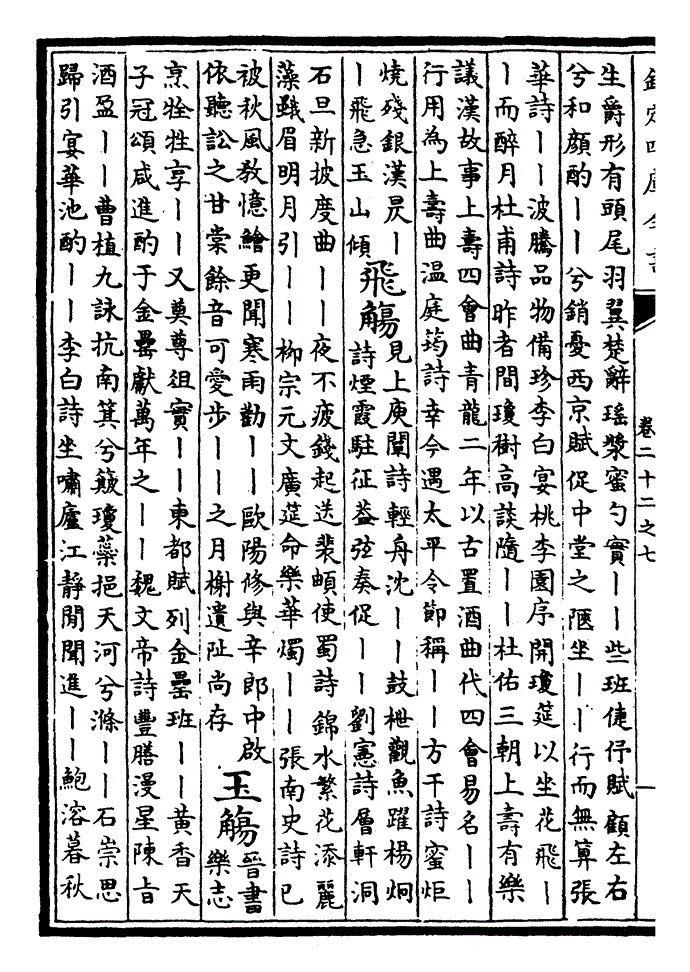 欽定四庫全書
卷二十二之七
一
生爵形有頭尾羽翼楚辭瑤漿蜜勺實丨丨些班倢伃賦顧左右
兮和顔酌丨丨兮銷憂西京賦促中堂之陿坐丨丨行而無筭張
華詩丨丨波騰品物備珍李白宴桃李園序開瓊筵以坐花飛丨
丨而醉月杜甫詩昨者間瓊樹高談隨丨丨杜佑三朝上壽有樂
議漢故事上壽四會曲青龍二年以古置酒曲代四會易名丨丨
行用為上壽曲温庭筠詩幸今遇太平令節稱丨丨方干詩蜜炬
燒殘銀漢昃丨
丨飛急玉山傾
飛觴
見上庾闡詩輕舟沈丨丨鼓枻觀魚躍楊炯
詩煙霞駐征盖弦奏促丨丨劉憲詩層軒洞
石旦新披度曲丨丨夜不疲錢起送裴頔使蜀詩錦水繁花添麗
藻峨眉明月引丨丨柳宗元文廣筵命樂華燭丨丨張南史詩已
被秋風教憶鱠更聞寒雨勸丨丨歐陽修與辛郎中啟
依聽訟之甘棠餘音可愛步丨丨之月榭遺阯尚存
玉觴
晉書
樂志
烹牷牲享丨丨又奠尊俎實丨丨東都賦列金罍班丨丨黃香天
子冠頌咸進酌于金罍獻萬年之丨丨魏文帝詩豐膳漫星陳旨
酒盈丨丨曹植九詠抗南箕兮簸瓊蘂挹天河兮滌丨丨石崇思
歸引宴華池酌丨丨李白詩坐嘯廬江靜閒聞進丨丨鮑溶暮秋